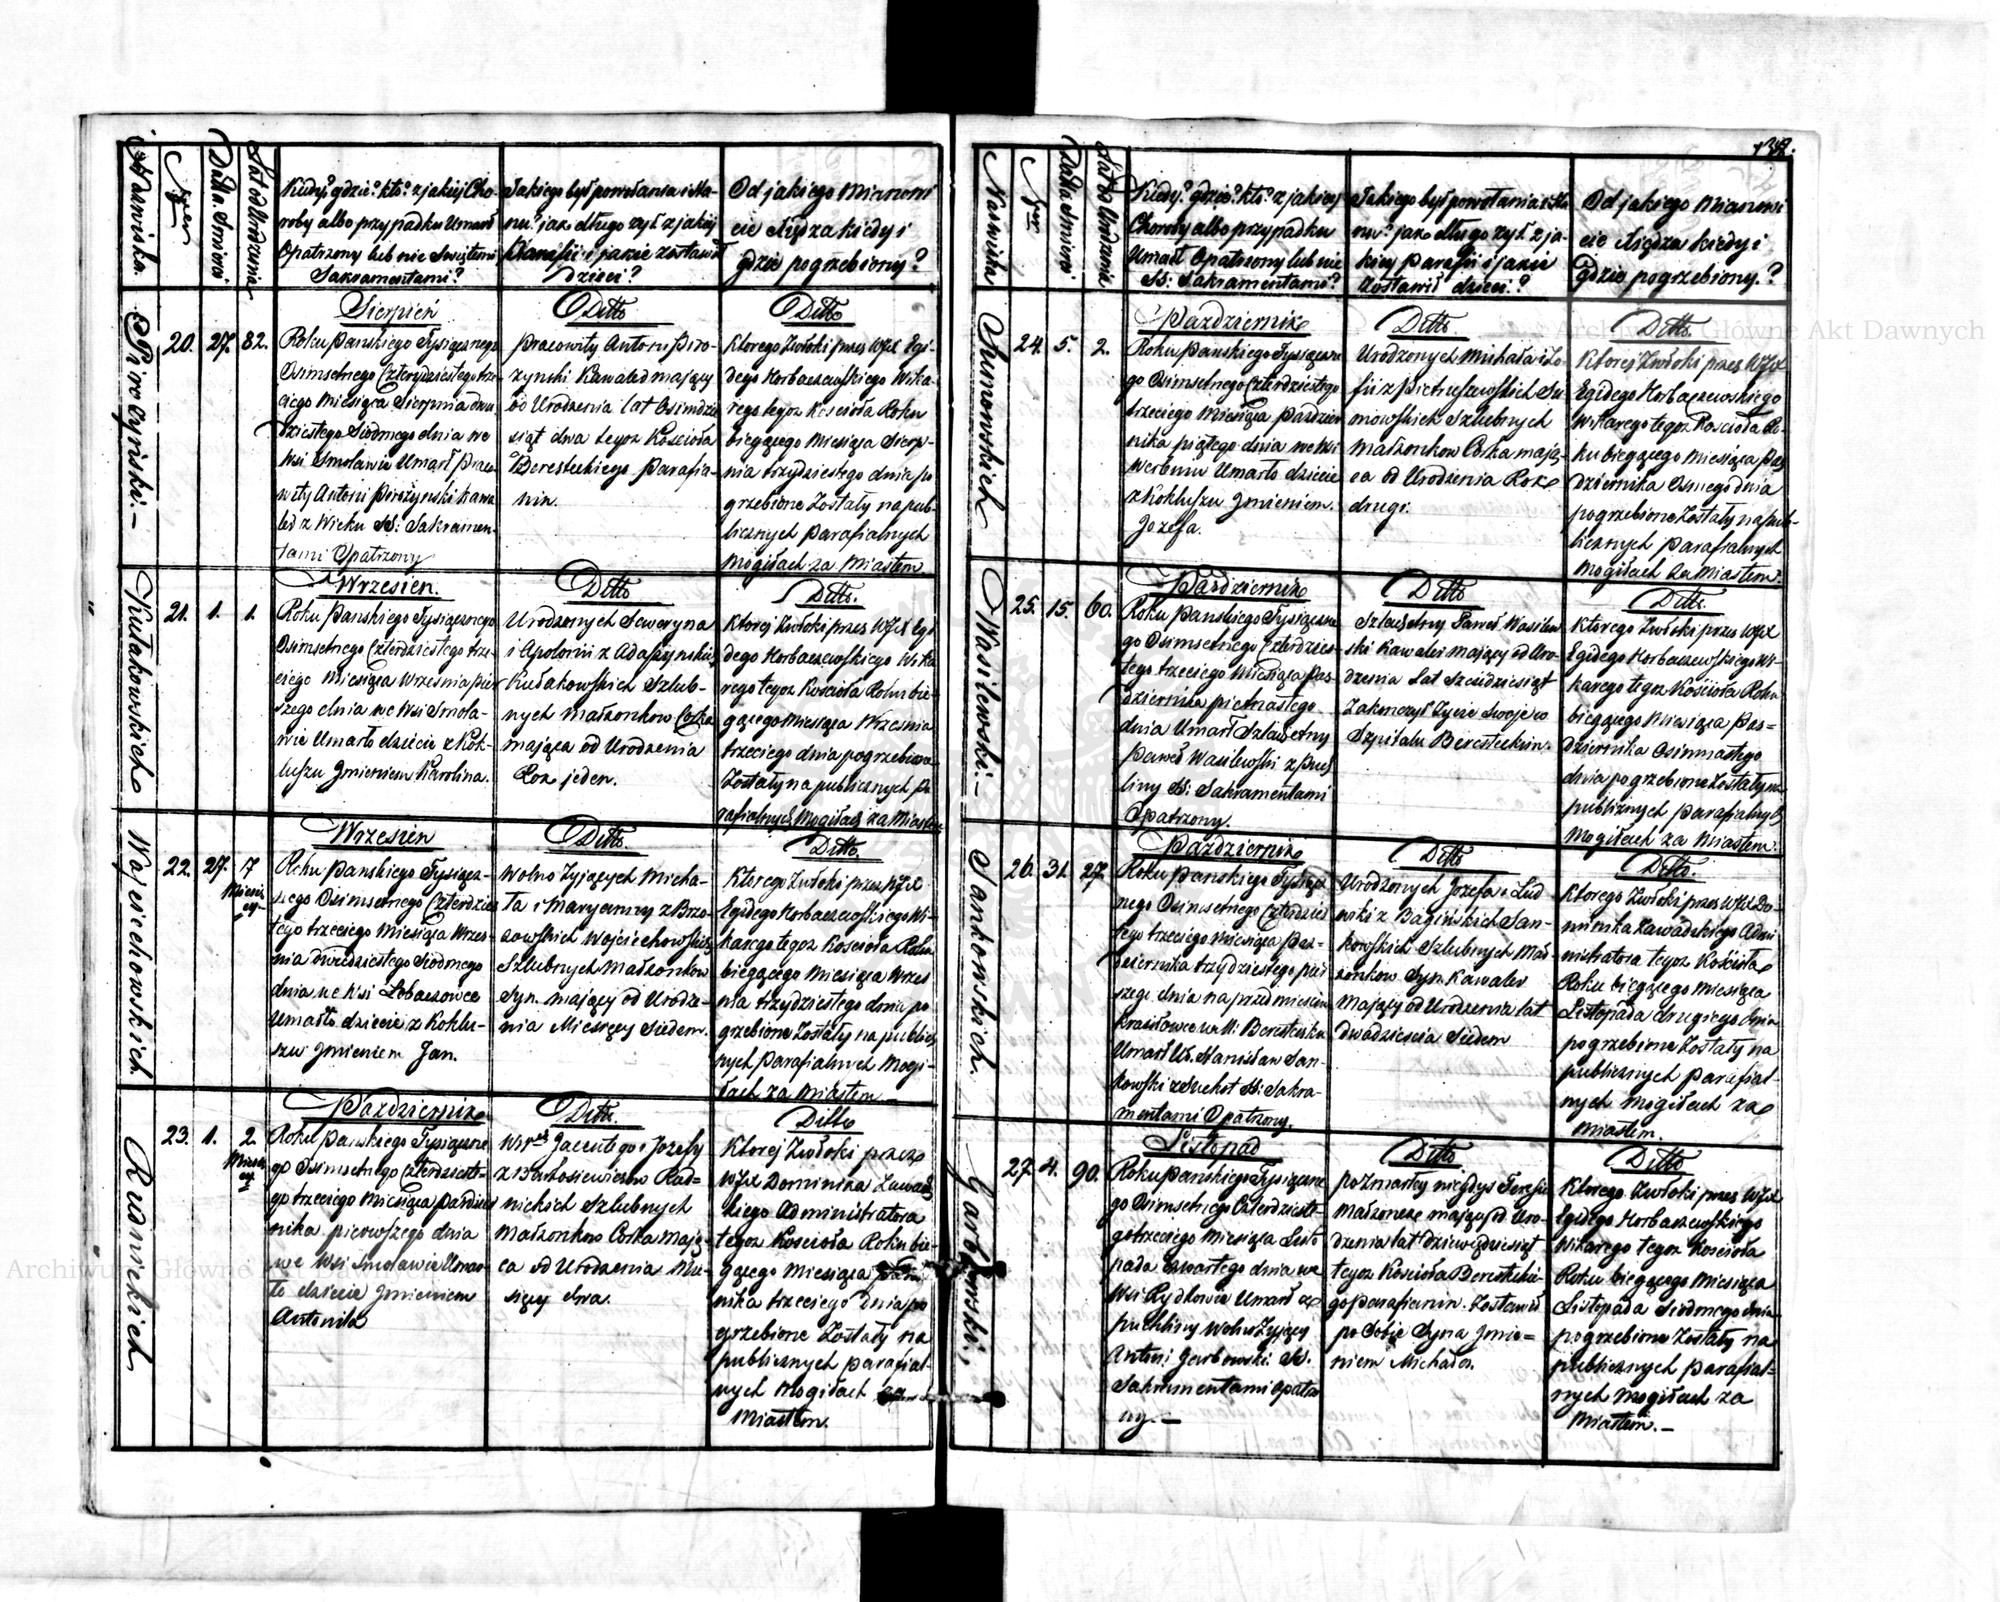 Nazwiska.
Numer
Datta Smierci
Lat od Urodzenia
Kiedy? gdzie? kto? z jakiej Cho-
roby albo przypadku Umarł
Opatrzony lub nie Swiętemi
Sakramentami?
Jakiego był powołania i Sta-
nu? jak długo żył z jakiej
Parafii i jakie zostawił
Dzieci?
Od jakiego Mianowi
cie Xiędza kiedy i
gdzie pogrzebiony?
Pirożyński.-
20.
27.
82.
Sierpień
Roku Pańskiego Tysiącznego
Osimsetnego Czterdziestego trze-
ciego Miesiąca Sierpnia dwu
dziestego Siodmego dnia we
Wsi Smolawie Umarł Praco-
wity Antoni Pirożynski Kawa
ler z Wieku SS: Sakramen-
tami Opatrzony
Ditto
Pracowity Antoni Piro-
żynski Kawaler mający
od Urodzenia lat Osimdzie
siąt dwa tegoż Kościoła
Beresteckiego Parafia-
nin.
Ditto
Ktorego Zwłoki przez WJX Egi-
dego Horbaczewskiego Wika-
rego tegoż Kościoła Roku
bieżącego Miesiąca Sierp-
nia trzydziestego dnia po
grzebione Zostały na pub-
licznych Parafialnych
Mogiłach za Miastem
Kułakowskich
21.
1.
1.
Wrzesien.
Roku Pańskiego Tysiącznego
Osimsetnego Czterdziestego trze-
ciego Miesiąca Września pier
szego dnia we Wsi Smola-
wie Umarło dziecie z Kok-
luszu Jmieniem Karolina.
Ditto
Urodzonych Seweryna
i Apolonii z Adaszynskich
Kułakowskich Szlub-
nych Małżonkow Corka
mająca od Urodzenia
Rok jeden.
Ditto.
Ktorej Zwłoki przez WJX Egi
dego Horbaczewskiego Wika
rego tegoż Kościoła Roku bie-
żącego Miesiąca Wrzesnia
trzeciego dnia pogrzebione
Zostały na publicznych Pa
rafialnych Mogiłach za Miastem
Wojciechowskich
22.
27.
7
Miesię
cy
Wrzesien
Roku Pańskiego Tysiącz-
nego Osimsetnego Czterdzies
tego trzeciego Miesiąca Wrzes-
nia dwudziestego Siodmego
dnia we Wsi Lobaczowce
Umarło dziecie z Koklu-
szu Jmieniem Jan.
Ditto
Wolno Żyjących Micha-
ła i Maryanny z Brzo-
zowskich Wojciechowskich
Szlubnych Małżonkow
Syn. mający od Urodze-
nia Miesięcy Siedem.
Ditto
Ktorego Zwłoki przez WJX
Egidego Horbaczewskiego Wi-
karego tegoż Kościoła Roku
bieżącego Miesiąca Wrzes
nia trzydziestego dnia po
grzebione Zostały na publicz
nych Parafialnych Mogi-
łach za Miastem
Rudnickich
23.
1.
2.
Miesię
cy
Pazdziernik
Roku Pańskiego Tysiączne
go Osimsetnego Czterdzieste-
go trzeciego Miesiąca Pazdzier
nika pierwszego dnia
we Wsi Smolawie Umar-
ło dziecie Jmieniem
Antonila
Ditto.
Jacentego i Jozefy
z Bartosiewiczow Rud-
nickich Szlubnych
Małżonkow Corka mają-
ca od Urodzenia Mie-
sięcy dwa.
Ditto
Ktorej Zwłoki przez
WJX Dominika Zawadz
kiego Administratora
tegoż Kościoła Roku bie-
żącego Miesiąca Pazdzier
nika trzeciego dnia po
grzebione Zostały na
publicznych Parafial-
nych Mogiłach za
Miastem.
132.
Nazwiska
Numer
Datta Smierci
Lat od Urodzenia
Kiedy? gdzie? kto? z jakiej
Choroby albo przypadku
Umarł Opatrzony lub nie
SS: Sakramentami?
Jakiego był powołania i Sta
nu? jak długo żył z ja-
kiej Parafii i jakie
Zostawił dzieci?
Od jakiego Mianowi
cie Xiędza kiedy i
gdzie pogrzebiony.?
Sumowskich
24.
5.
2.
Pazdziernik
Roku Pańskiego Tysiączne
go Osimsetnego Czterdziestego
trzeciego Miesiąca Pazdzier
nika piątego dnia we Wsi
Werbniu Umarło dziecie
z Kokluszu Jmieniem
Jozefa.
Ditto
Urodzonych Michała i Zo-
fii z Pietruszewskich Su
mowskich Szlubnych
Małżonkow Corka mają-
ca od Urodzenia Rok
drugi.
Ditto.
Ktorej Zwłoki przez WJX
Egidego Horbaczewskiego
Wikarego tegoż Kościoła Ro-
ku bieżącego Miesiąca Paz
dziernika Osmego dnia
pogrzebione Zostały na pub-
licznych Parafialnych
Mogiłach za Miastem.
Wasilewski.-
25.
15.
60.
Pazdziernik
Roku Pańskiego Tysiączne
go Osimsetnego Czterdzies-
tego trzeciego Miesiąca Paz-
dziernika pietnastego
dnia Umarł Szlachetny
Paweł Wasilewski z Puch
liny SS: Sakramentami
Opatrzony.
Ditto
Szlachetny Paweł Wasilew
ski Kawaler mający od Uro-
dzenia Lat Szesdziesiąt
Zakonczył Życie Swoje w
Szpitalu Beresteckim.
Ditto.
Ktorego Zwłoki przez WJX
Egidego Horbaczewskiego Wi-
karego tegoż Kościoła Roku
bieżącego Miesiąca Paz-
dziernika Osimnastego
dnia pogrzebione Zostały na
publicznych Parafialnych
Mogiłach za Miastem.
Jankowskich.
26.
31.
27
Pazdziernik
Roku Pańskiego Tysiącz
nego Osimsetnego Czterdzies
tego trzeciego Miesiąca Paz-
dziernika trzydziestego pier
szego dnia na przedmiesciu
Umarł Ur. Stanisław Jan-
kowski z Suchot SS: Sakra-
mentami Opatrzony.
Ditto
Urodzonych Jozefa i Lud
wiki z Bagińskich Jan-
kowskich Szlubnych Mał
żonkow Syn Kawaler
Mający od Urodzenia lat
dwadziescia Siedem
Ditto.
Ktorego Zwłoki przez WJX Do-
minika Zawadzkiego Admi
nistratora tegoż Kościoła
Roku bieżącego Miesiąca
Listopada drugiego dnia
pogrzebione Zostały na
publicznych Parafial-
nych Mogiłach za
Miastem.
Garbowski,
27
4.
90.
Listopad
Roku Pańskiego Tysiączne
go Osimsetnego Czterdzieste-
go trzeciego Miesiąca Listo
pada Czwartego dnia we
Wsi Rydlowie Umarł z
puchliny Wolno Żyjący
Antoni Garbowski SS.
Sakramentami Opatrzo
ny.-
Ditto
po Zmarłey niegdys Teresie
Małżonce mający od Uro-
dzenia lat dziewięcdziesiąt
tegoż Kościoła Berestecki-
go Parafianin. Zostawił
po Sobie Syna Jmie-
niem Michała.
Ditto
Ktorego Zwłoki przez WJX
Egidego Horbaczewskiego
Wikarego tegoż Kościoła
Roku bieżącego Miesiąca
Listopada Siodmego dnia
pogrzebione Zostały na
publicznych Parafial-
nych Mogiłach za
Miastem.-
Archiwum Główne Akt Dawnych
Archiwum Główne Akt Dawnych